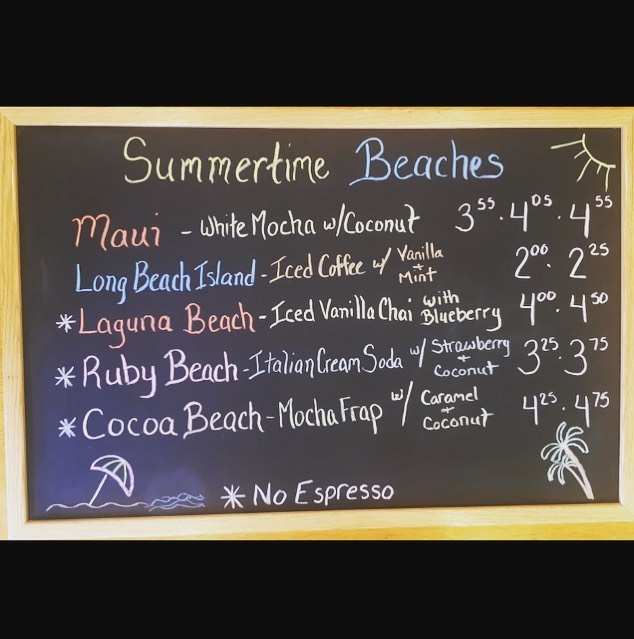 Summertime Beaches
Maui - White Mocha w/Coconut 3.55 · 4.05 · 4.55
Long Beach Island - Iced Coffee w/ Vanilla + Mint 2.00 · 2.25
*Laguna Beach - Iced Vanilla Chai with Blueberry 4.00 · 4.50
*Ruby Beach - Italian Cream Soda w/ Strawberry + Coconut 3.25 · 3.75
*Cocoa Beach - Mocha Frap w/ Caramel + Coconut 4.25 · 4.75
* No Espresso